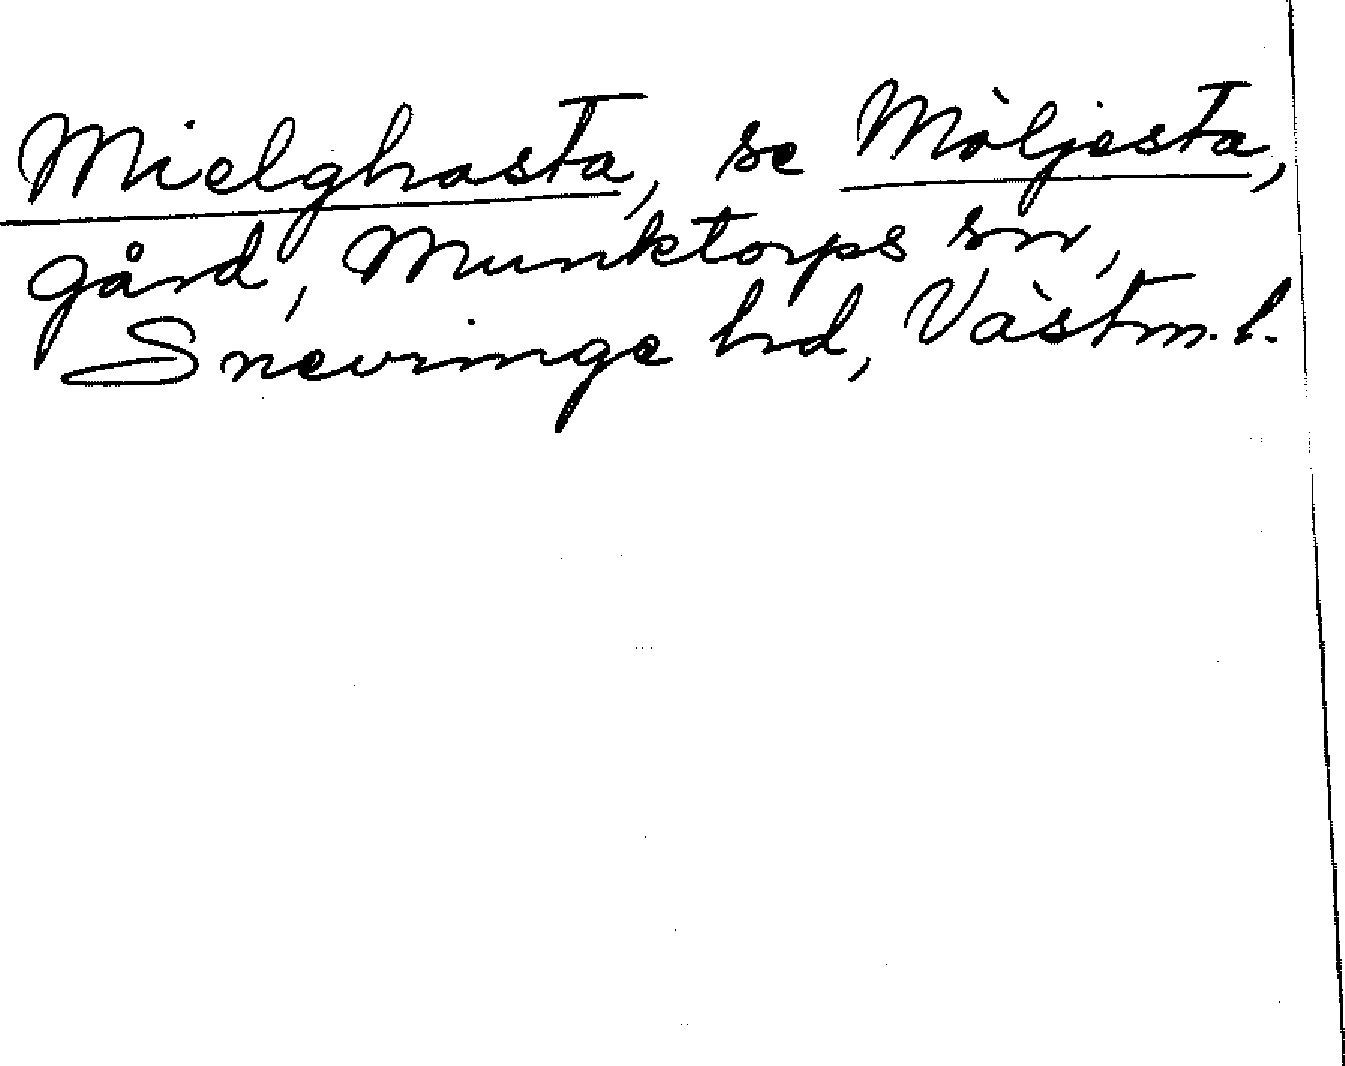 Mielghasta, se Möljesta,
gård, Munktorps sn,
Snevringe hd, Västm. l.